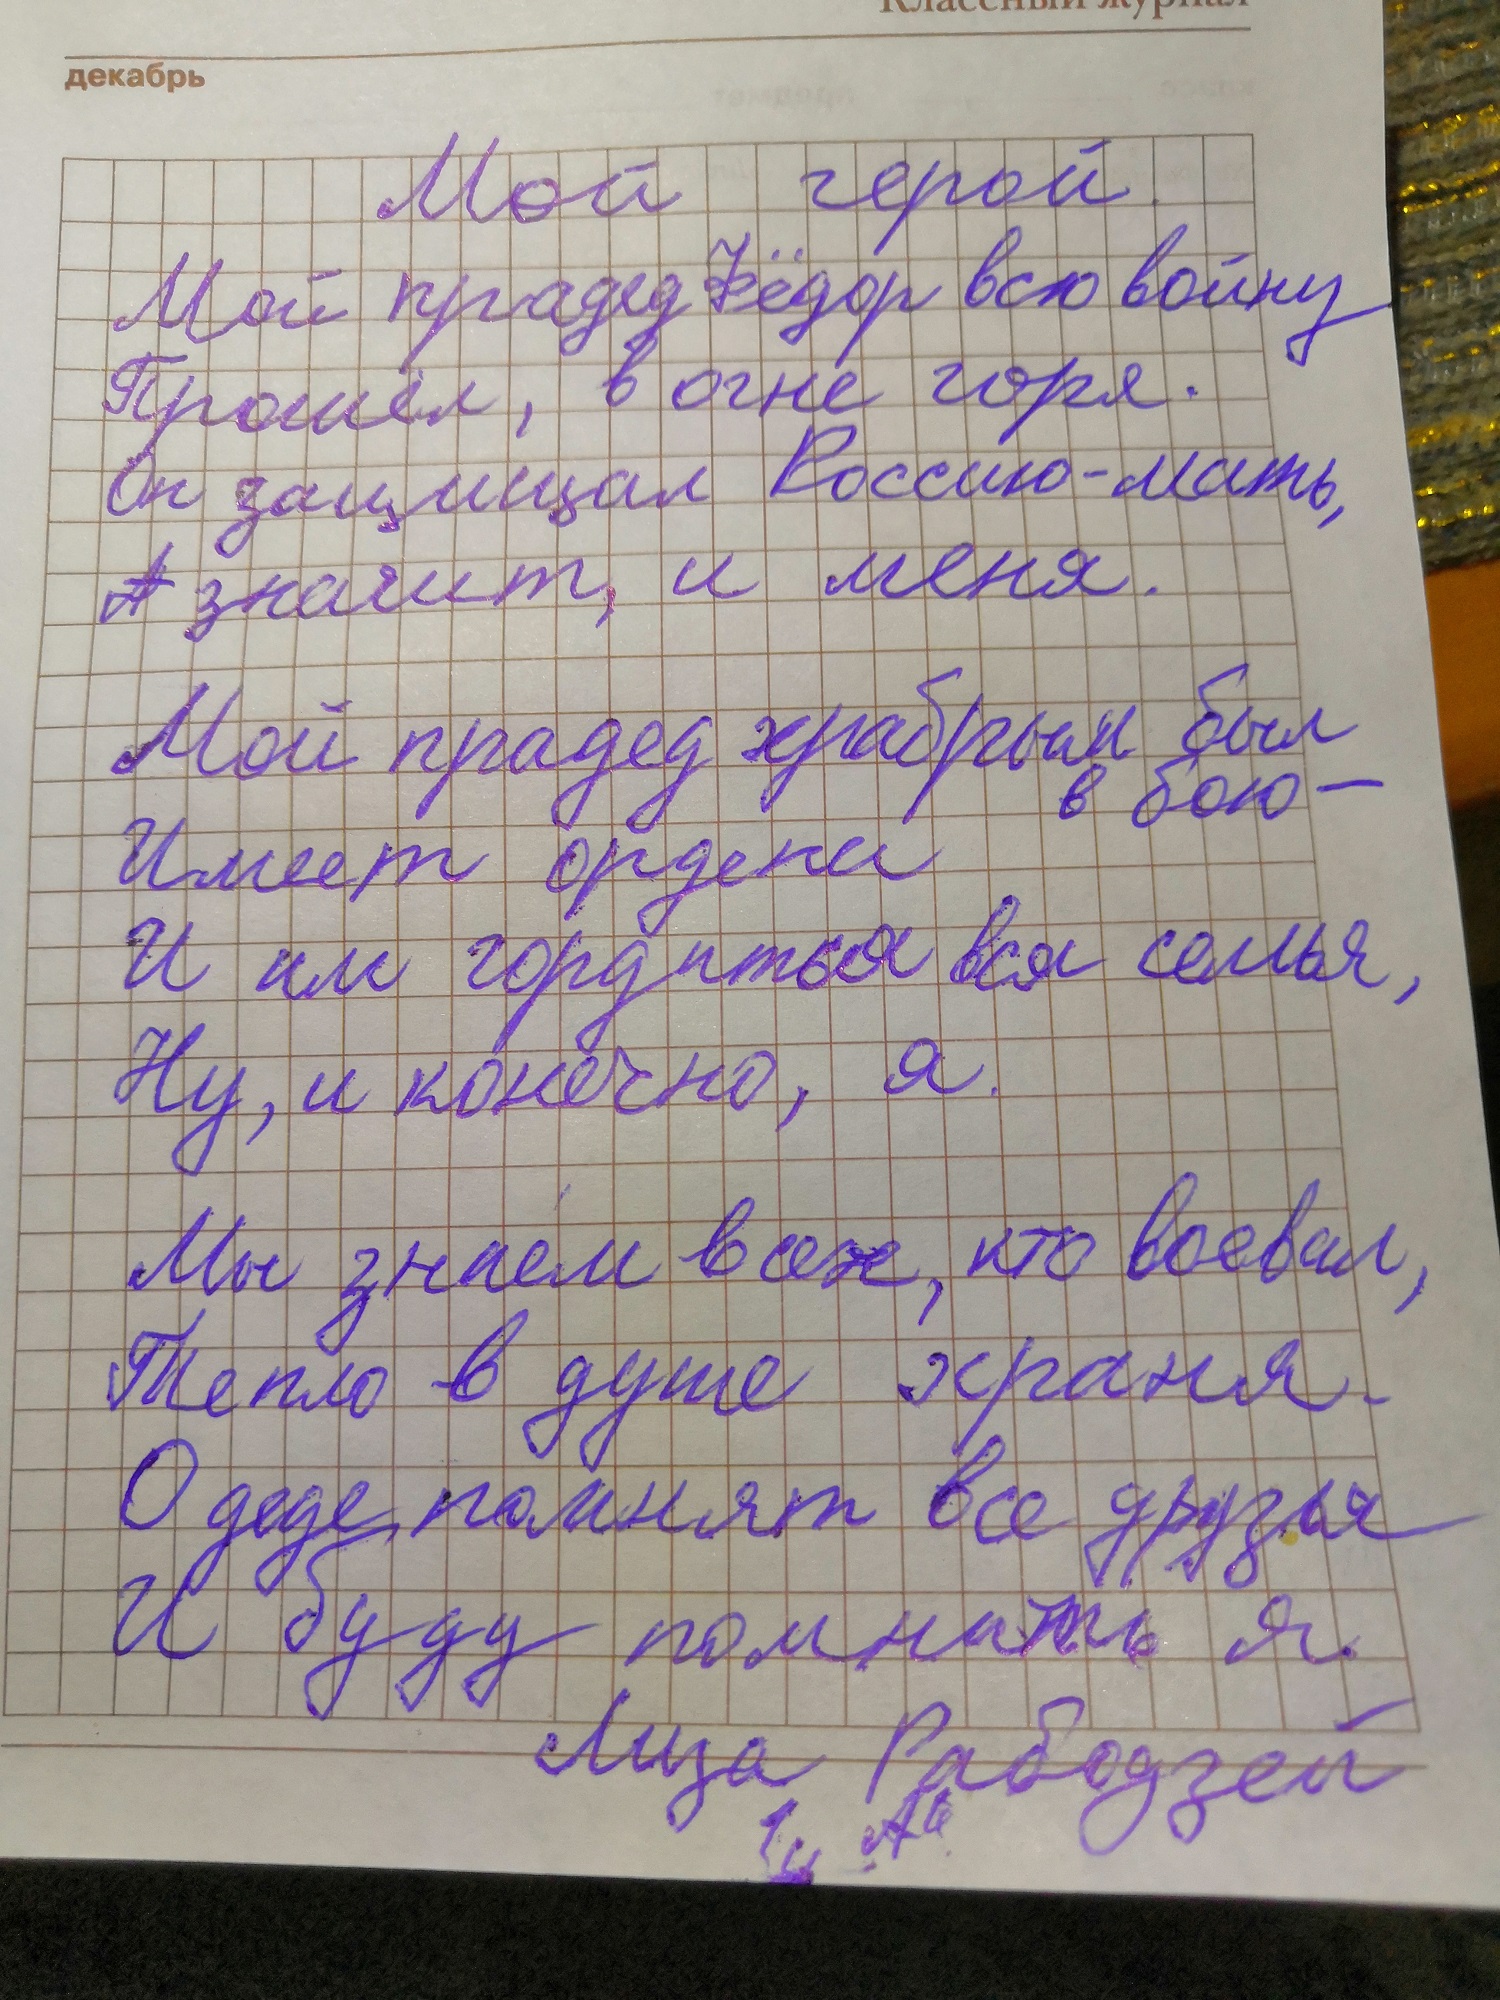 Классный журнал
декабрь
Мой герой.
Мой прадед Фёдор всю войну
Прошёл, в огне горя.
Он защищал Россию-мать,
А значит, и меня.
Мой прадед храбрым был
в бою-
Имеет ордена
И им гордиться вся семья,
Ну, и конечно, я.
Мы знаем всех, кто воевал,
Тепло в душе храня.
О деде, помнят все друзья
И буду помнить я.
Лиза Рабодзей
1 "А"